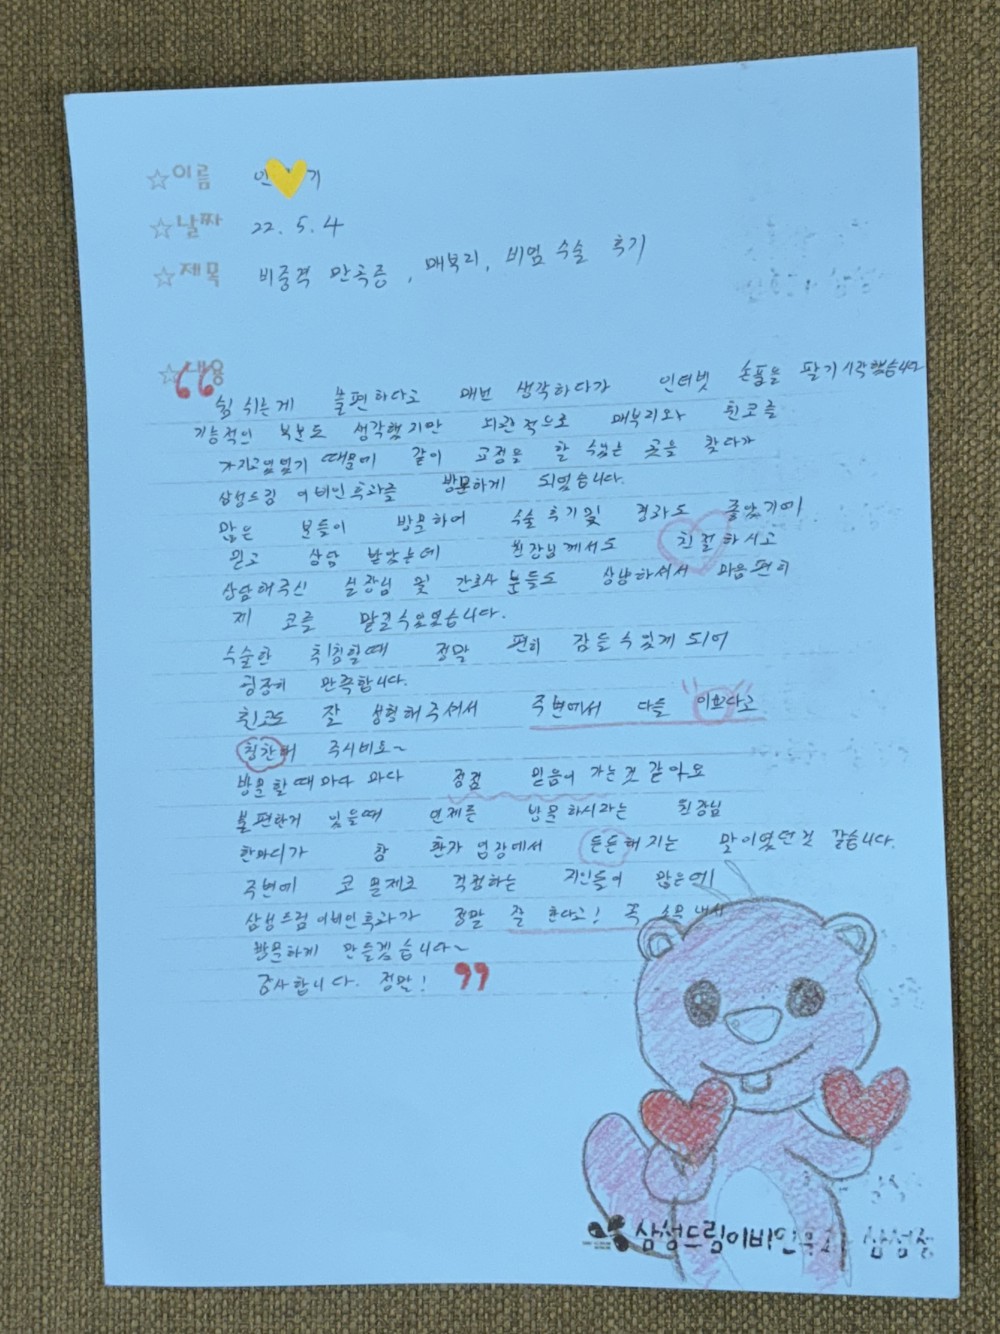 ☆이름 인 기
☆날짜 22. 5. 4
☆제목 비중격 만곡증, 매부리, 비염 수술 후기
☆내용
“숨 쉬는게 불편하다고 매번 생각하다가 인터넷 손품을 팔기 시작했습니다
기능적인 부분도 생각했지만 외관적으로 매부리와 휜코를
가지고있었기 때문에 같이 교정을 할 수있는 곳을 찾다가
삼성드림 이비인후과를 방문하게 되었습니다.
많은 분들이 방문하여 수술 후기및 결과도 좋았기에
믿고 상담 받았는데 원장님께서도 친절하시고
상담해주신 실장님 및 간호사 분들도 상냥하셔서 마음편히
제 코를 맡길수있었습니다.
수술한 취침할때 정말 편히 잠들수 있게 되어
굉장히 만족합니다.
휜코도 잘 성형해주셔서 주변에서 다들 이쁘다고
칭찬해 주시네요~
방문할때마다 마다 점점 믿음이 가는것 같아요
불편한거 있을때 언제든 방문하시라는 원장님
한마디가 참 환자 입장에서 든든해지는 말이였던것 같습니다.
주변에 코 문제로 걱정하는 지인들이 많은데
삼성드림이비인후과가 정말 잘 한다고! 꼭 소문 내서
방문하게 만들겠습니다~
감사합니다. 정말! ”
삼성드림이비인후과 삼성점